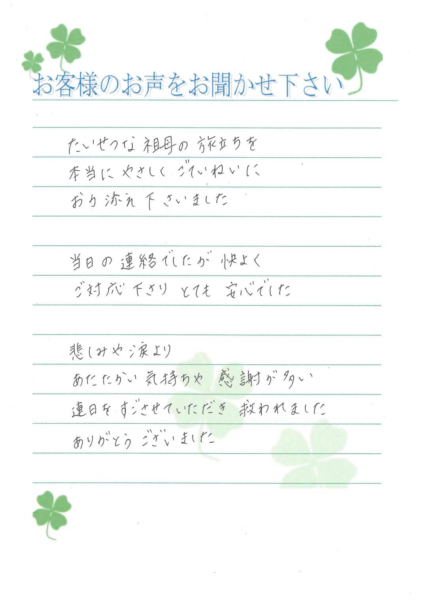 お客様のお声をお聞かせ下さい
たいせつな祖母の旅立ちを
本当にやさしくごていねいに
おり添え下さいました
当日の連絡でしたが快よく
ご対応下さりとても安心でした
悲しみや涙より
あたたかい気持ちや感謝が多い
連日をすごさせていただき救われました
ありがとうございました